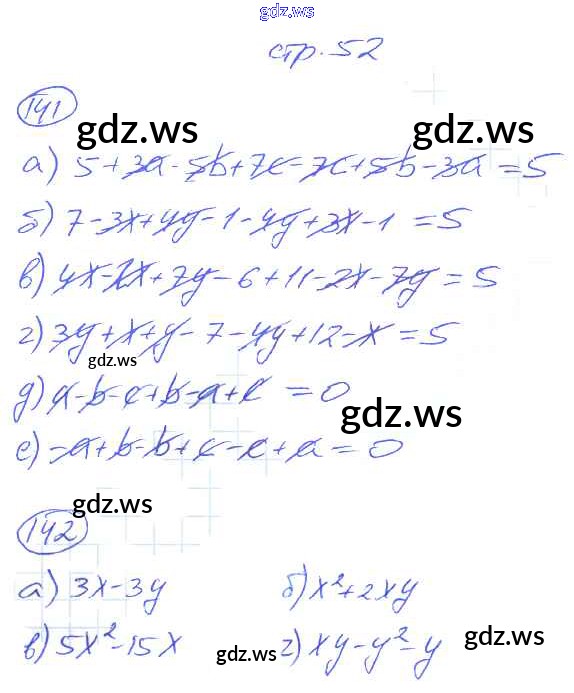 gdz.ws
стр. 52
141
gdz.ws gdz.ws
а) 5+3a-5b+7c-7c+5b-3a=5
б) 7-3x+4y-1-4y+3x-1=5
в) 4x-2x+7y-6+11-2x-7y=5
г) 3y+x+y-7-4y+12-x=5
gdz.ws
д) a-b-c+b-a+c=0
gdz.ws
е) -a+b-b+c-c+a=0
gdz.ws
142
а) 3x-3y б) x²+2xy
в) 5x²-15x г) xy-y²-y
gdz.ws gdz.ws